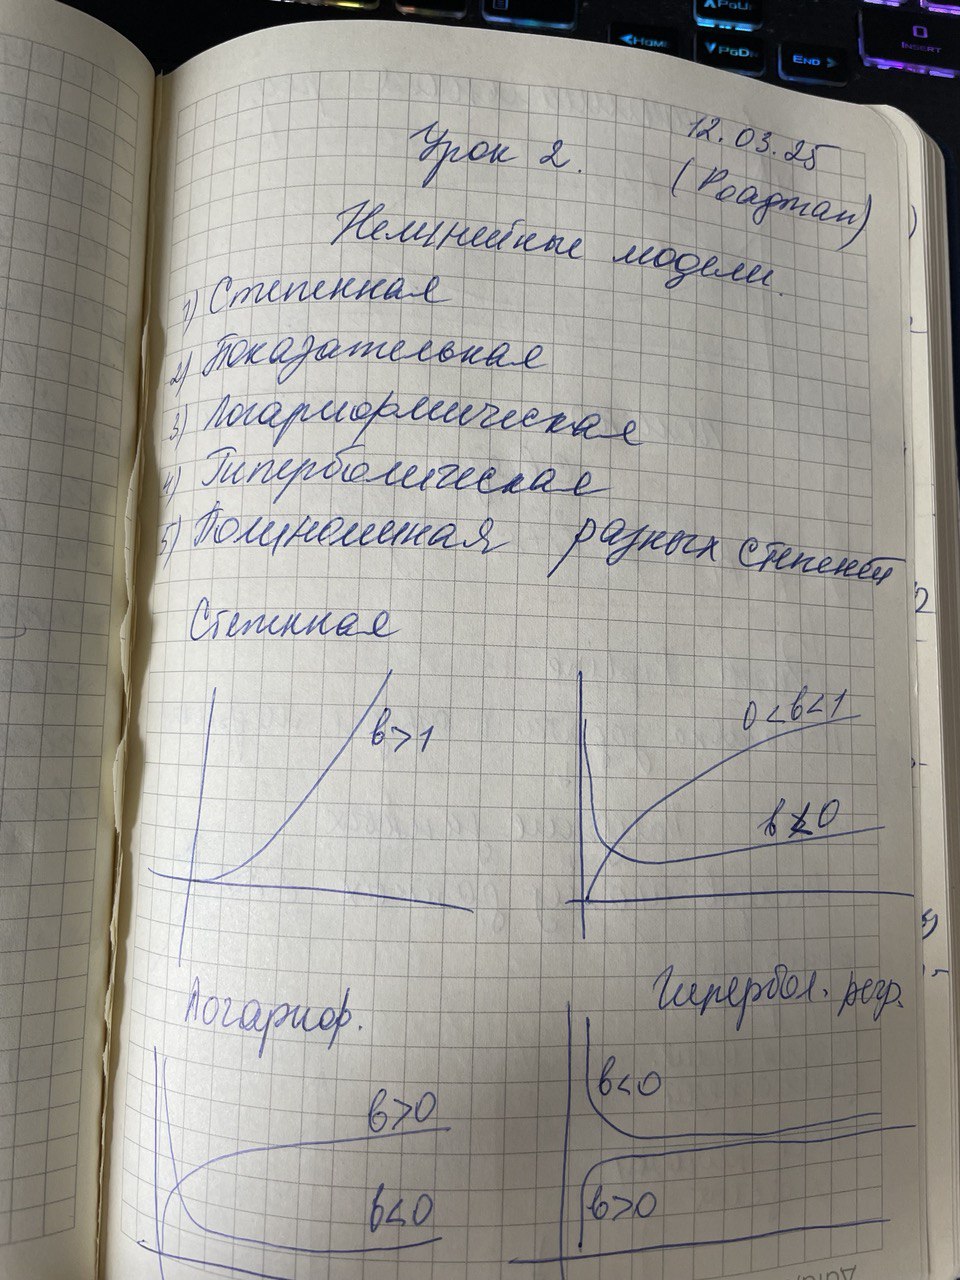 HOME
PgDn
END >
0
INSERT
12.03.25
Урок 2.
(Роадмап)
Нелинейные модели.
1) Степенная
2) Показательная
3) Логарифмическая
4) Гиперболическая
5) Полиномная разных степеней
Степенная
b>1
0<b<1
b<0
Логариф.
Гипербол. регр.
b>0
b<0
b<0
b>0